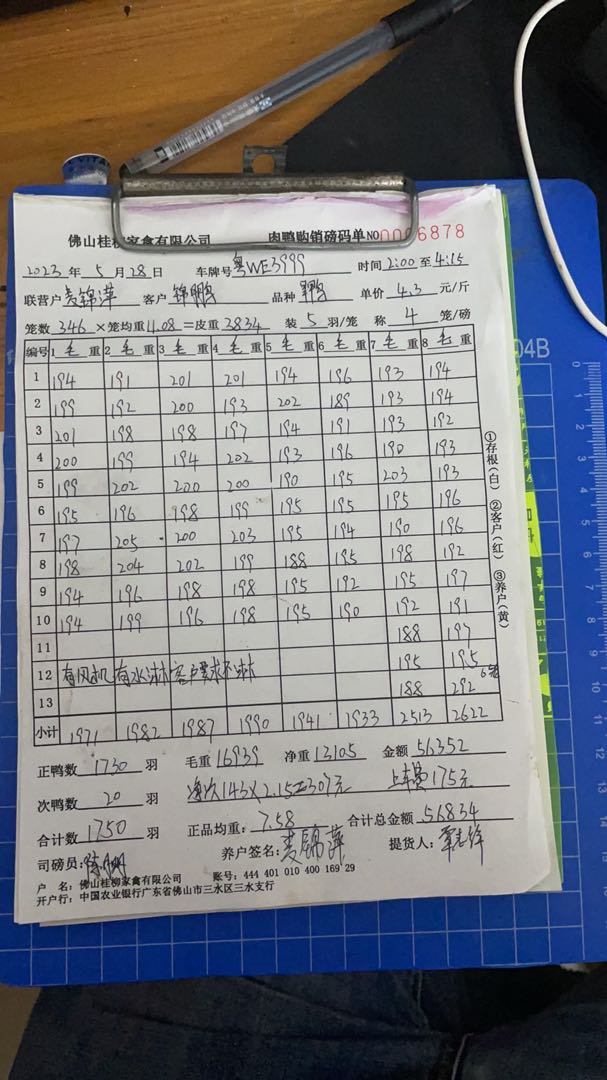 佛山桂柳家禽有限公司 肉鸭购销磅码单 NO 0006878
2023 年 5 月 28 日 车牌号 粤WE3999 时间 2:00 至 4:15
联营户 麦锦萍 客户 锦鹏 品种 单价 4.3 元/斤
笼数 346 ×笼均重 11.08 =皮重 3834 装 5 羽/笼 称 4 笼/磅
编号 1 毛 重 2 毛 重 3 毛 重 4 毛 重 5 毛 重 6 毛 重 7 毛 重 8 毛 重
1 194 191 201 201 194 196 193 194
2 199 192 200 193 202 189 193 194
3 201 198 198 197 194 191 193 192
4 200 199 194 202 193 196 190 193
5 199 202 200 200 190 195 203 193
6 195 196 198 199 195 195 195 196
7 197 205 200 203 195 194 190 196
8 198 204 202 199 188 195 198 192
9 194 196 198 198 195 192 195 197
10 194 199 196 198 195 190 192 191
11 188 197
12 有风机 有水淋 客户要求不淋 195 195
13 188 292 6笼
小计 1971 1982 1987 1990 1941 1933 2513 2622
①存根(白) ②客户(红) ③养户(黄)
正鸭数 1730 羽 毛重 16939 净重 13105 金额 56352
次鸭数 20 羽 净次143×2.15=307元 上车费175元
合计数 1750 羽 正品均重: 7.58 合计总金额 56834
司磅员: 养户签名: 麦锦萍 提货人:
户 名: 佛山桂柳家禽有限公司 账号: 444 401 010 400 169 29
开户行: 中国农业银行广东省佛山市三水区三水支行
04B